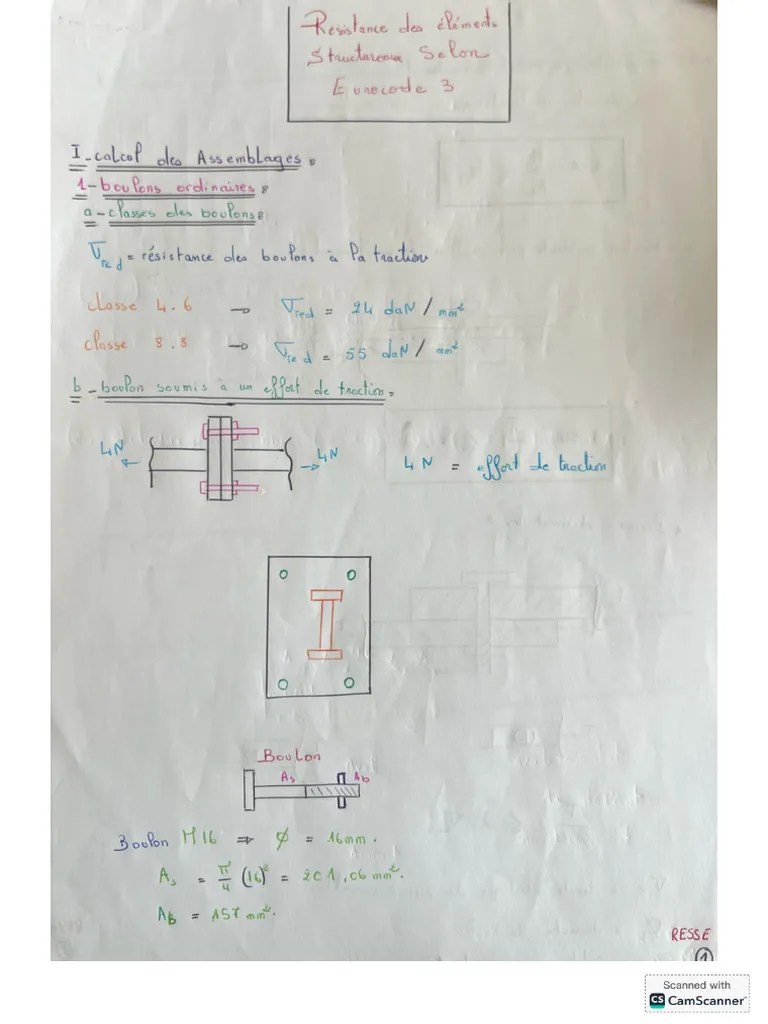 Résistance des éléments
Structuraux Selon
Eurocode 3
I - calcul des Assemblages :
1 - boulons ordinaires :
a - classes des boulons :
σred = résistance des boulons à la traction
classe 4.6 → σred = 24 daN/mm²
classe 8.8 → σred = 55 daN/mm²
b - boulon soumis à un effort de traction :
4N
4N
4N = effort de traction
Boulon
As
Ab
Boulon M16 ⇒ ϕ = 16mm.
As = π/4 (16)² = 201,06 mm².
AB = 157 mm².
RESSE
1
Scanned with
CS CamScanner